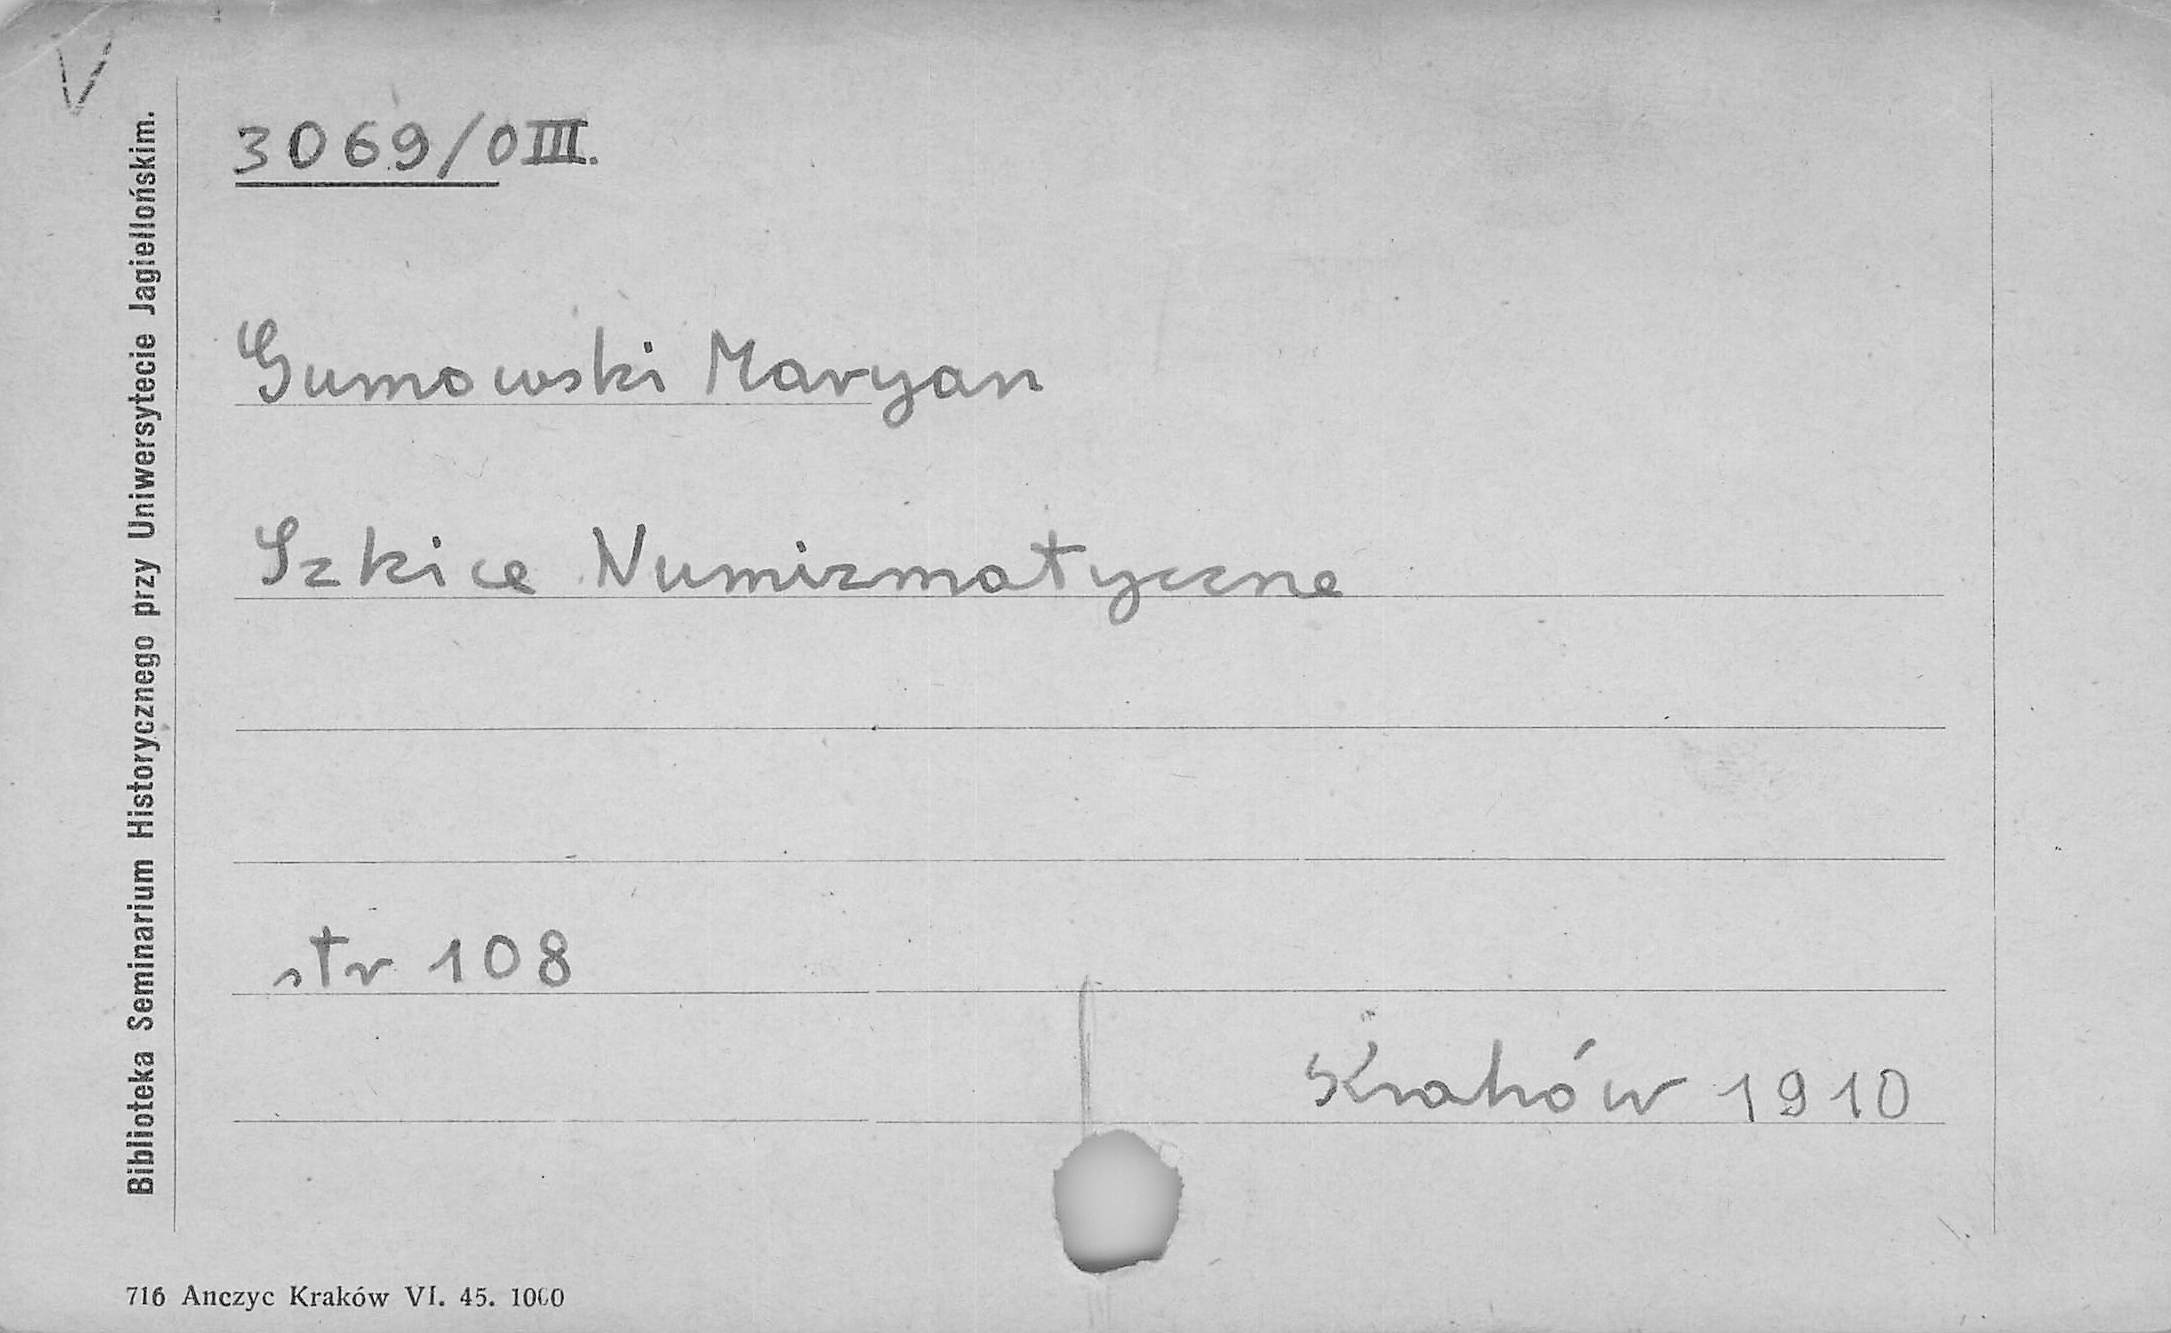 V
3069/O III.
Gumowski Maryan
Szkice Numizmatyczne
str 108
Kraków 1910
Biblioteka Seminarium Historycznego przy Uniwersytecie Jagiellońskim.
716 Anczyc Kraków VI. 45. 1000